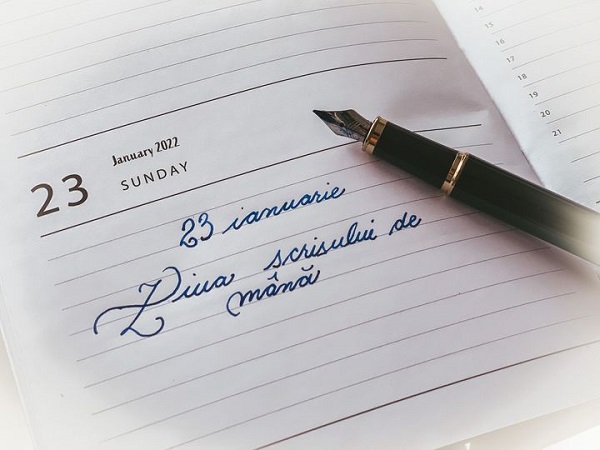 14
15
16
17
18
19
20
21
January 2022
23 SUNDAY
23 ianuarie
Ziua scrisului de
mână